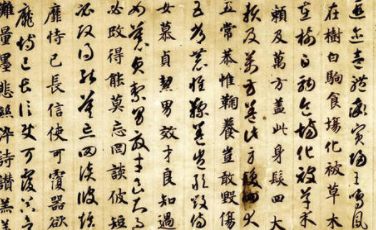 遐邇壹體率賓歸王鳴鳳
在樹白駒食場化被草木
在樹白駒食場化被草木
賴及萬方蓋此身髮四大
賴及萬方蓋此身髮四大
五常恭惟鞠養豈敢毀傷
五常恭惟鞠養豈敢毀傷
女慕貞絜男效才良知過
女慕貞絜男效才良知過
必改得能莫忘罔談彼短
必改得能莫忘罔談彼短
靡恃己長信使可覆器欲
靡恃己長信使可覆器欲
難量墨悲絲淬詩讚羔羊